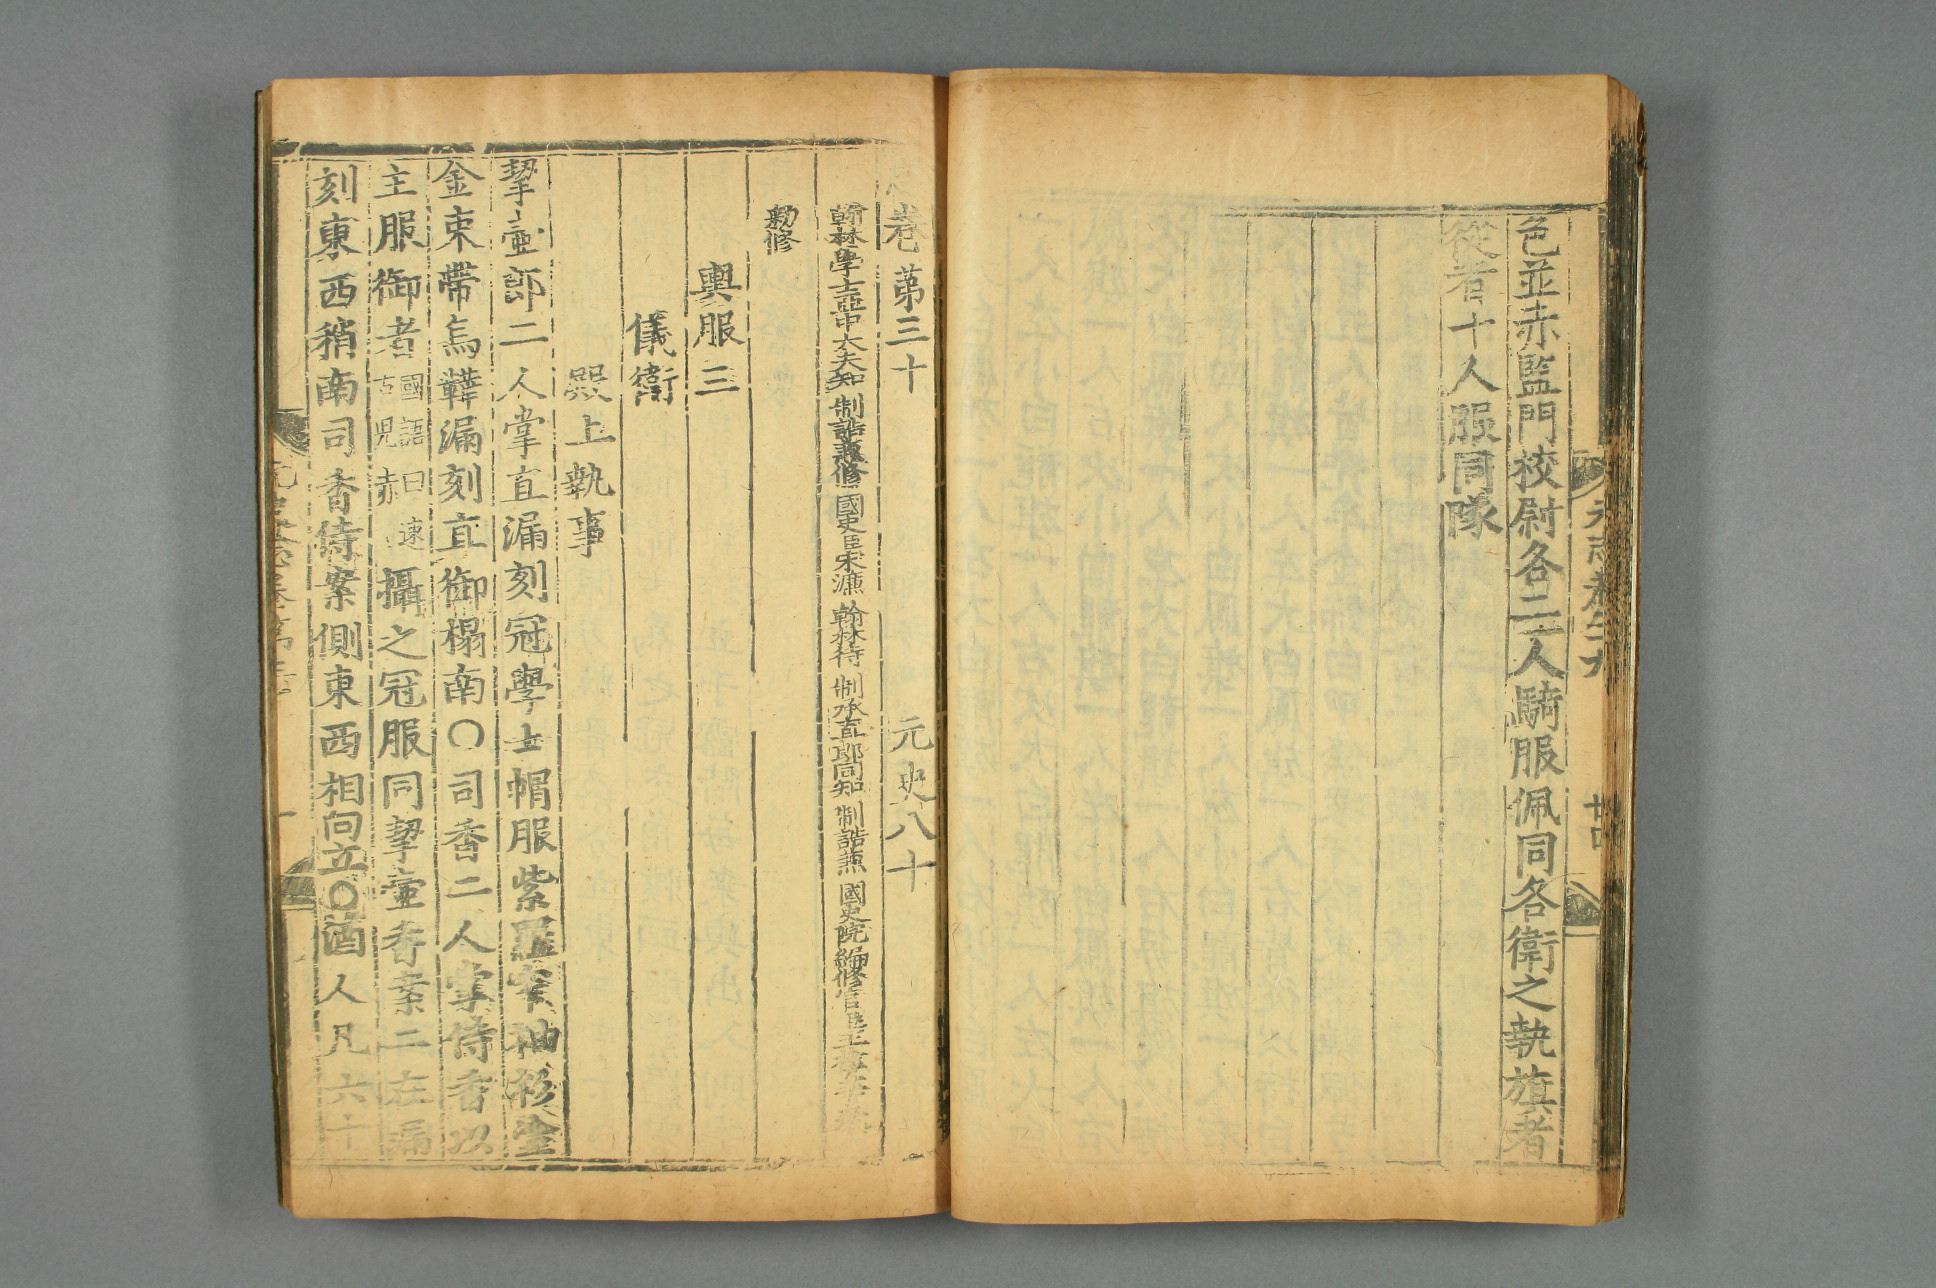 色並赤監門校尉各二人騎服佩同各衛之執旗者
從者十人服同隊
元志卷二十九
廿四
卷第三十 元史八十
翰林學士亞中大夫知制誥兼修國史臣宋濂翰林待制承直郎同知制誥兼國史院編修官臣王
勑修
輿服三
儀衛
殿上執事
挈壺郎二人掌直漏刻冠學士帽服紫羅窄袖衫塗
金束帶烏鞾漏刻直御榻南○司香二人掌侍香以
主服御者國語曰速古兒赤攝之冠服同挈壺香案二在漏
刻東西稍南司香侍案側東西相向立○酒人凡六十